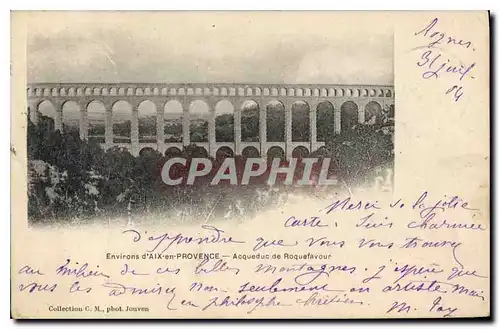 Rognes
31 Juil.
04
CPARHAMA
Merci de la jolie
carte, suis charmée
Environs d'AIX-en-PROVENCE — Acqueduc de Roquefavour
d'apprendre que vous vous trouvez
au milieu de ces belles montagnes. j'espère que
vous les admirez non seulement en artiste mais
en philosophe chrétien.
Collection C. M., phot. Jouven